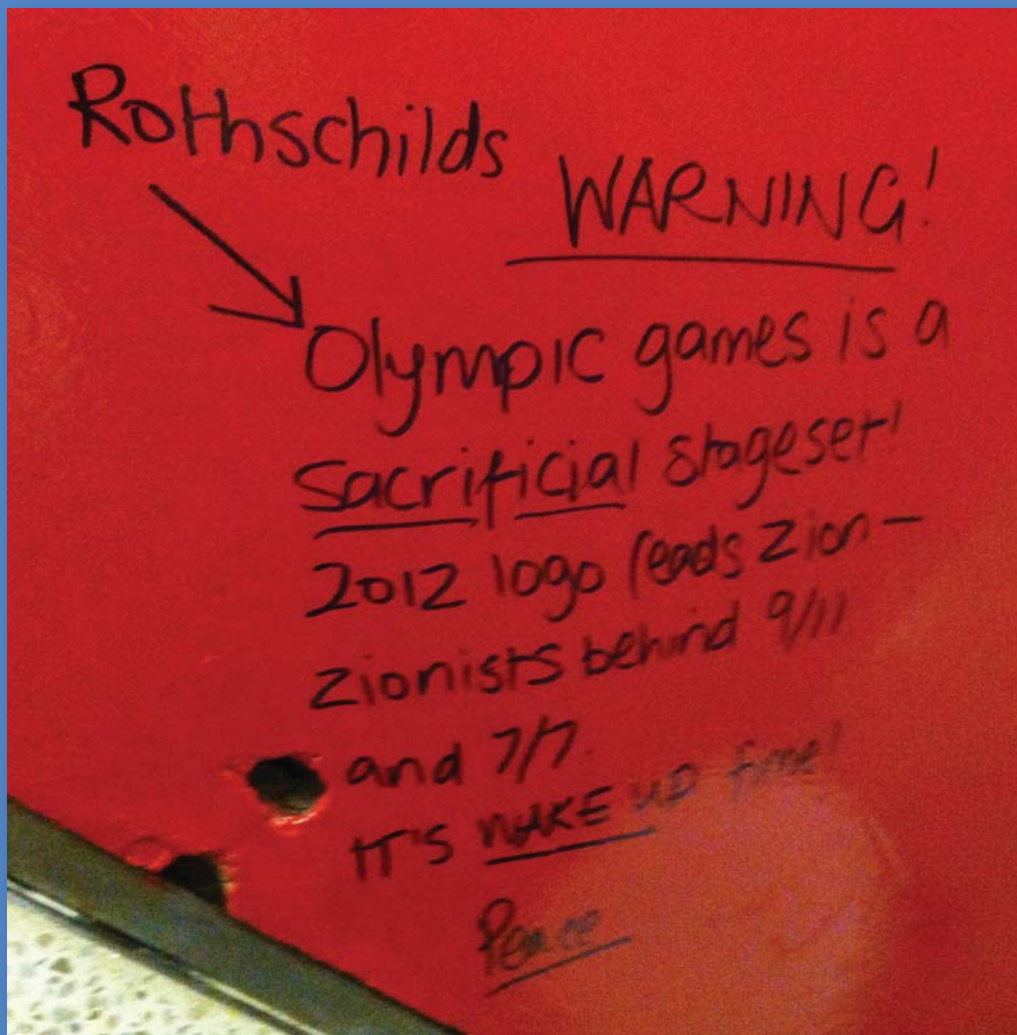 Rothschilds
WARNING!
Olympic games is a
sacrificial stageset!
2012 logo reads Zion -
Zionists behind 9/11
and 7/7.
IT'S WAKE UP time!
Peace